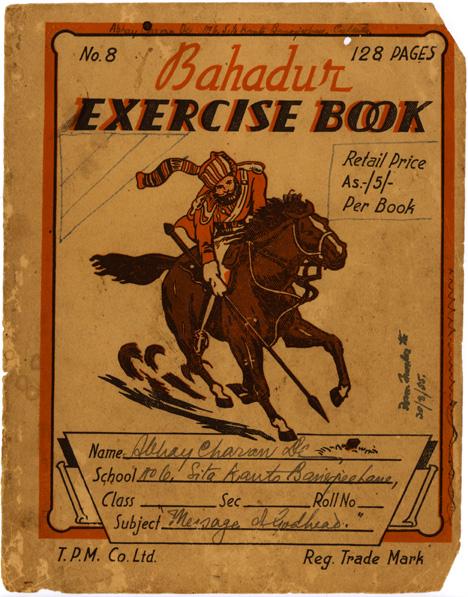 Abhay Charan De No 6, Sita Kanta Banerjee Lane, Calcutta
No. 8
128 PAGES
Bahadur
EXERCISE BOOK
Retail Price
As:-/5/-
Per Book
20/3/55.
Name Abhay Charan De
School No 6, Sita Kanta Banerjee Lane,
Class Sec Roll No
Subject "Message of Godhead."
T.P.M. Co. Ltd.
Reg. Trade Mark